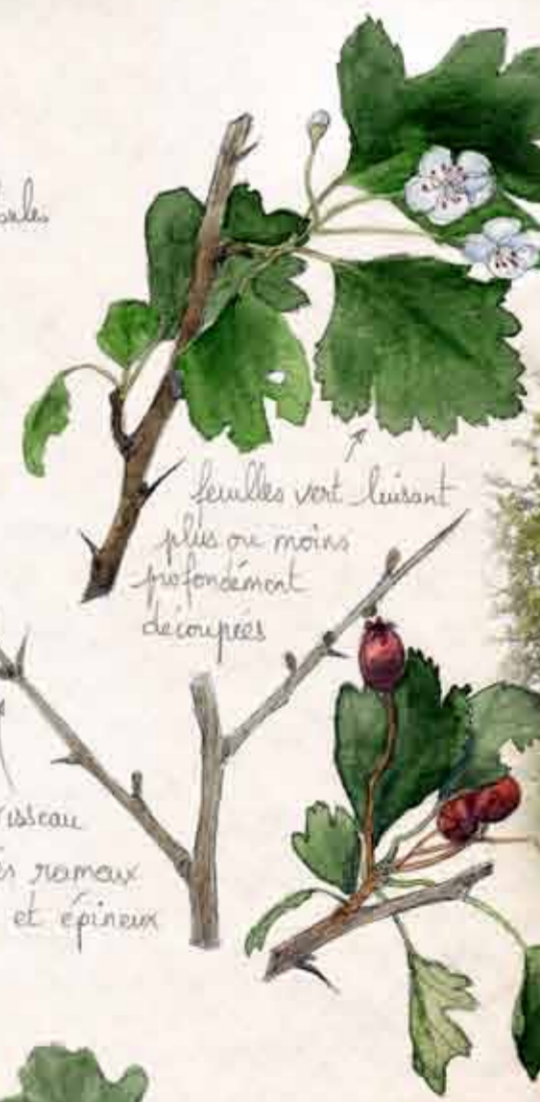 feuilles vert luisant
plus ou moins
profondément
découpées
rameux
et épineux